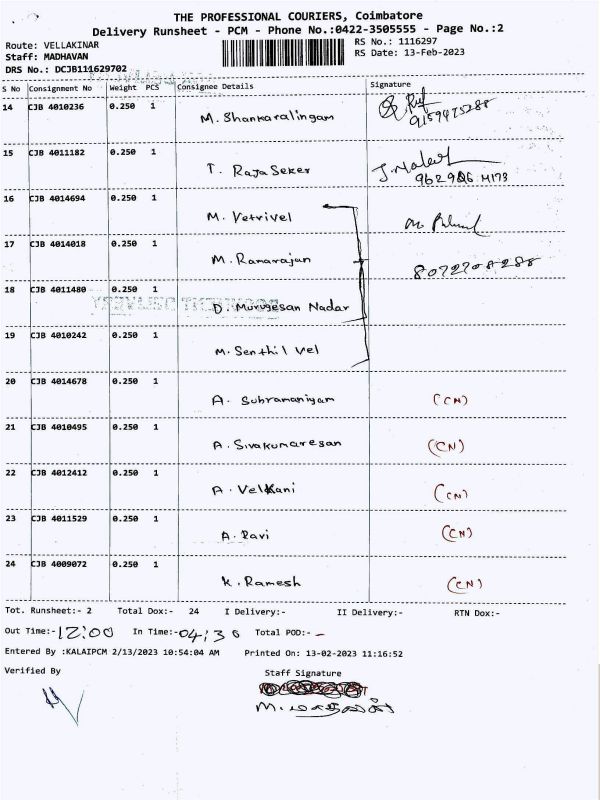 THE PROFESSIONAL COURIERS, Coimbatore
Delivery Runsheet - PCM - Phone No.:0422-3505555 - Page No.:2
Route: VELLAKINAR RS No.: 1116297
Staff: MADHAVAN RS Date: 13-Feb-2023
DRS No.: DCJB111629702
S No Consignment No Weight PCS Consignee Details Signature
14 CJB 4010236 0.250 1 M. Shankaralingam 9159475288
15 CJB 4011182 0.250 1 T. Raja Seker
16 CJB 4014694 0.250 1 M. Vetrivel
17 CJB 4014018 0.250 1 M. Ramarajan
18 CJB 4011480 0.250 1 D. Murugesan Nadar
19 CJB 4010242 0.250 1 M. Senthil Vel
20 CJB 4014678 0.250 1 A. Subramaniyam (CN)
21 CJB 4010495 0.250 1 A. Sivakumaresan (CN)
22 CJB 4012412 0.250 1 A. Velkani (CN)
23 CJB 4011529 0.250 1 A. Ravi (CN)
24 CJB 4009072 0.250 1 K. Ramesh (CN)
Tot. Runsheet:- 2 Total Dox:- 24 I Delivery:- II Delivery:- RTN Dox:-
Out Time:- 12:00 In Time:- 04:30 Total POD:- -
Entered By :KALAIPCM 2/13/2023 10:54:04 AM Printed On: 13-02-2023 11:16:52
Verified By Staff Signature